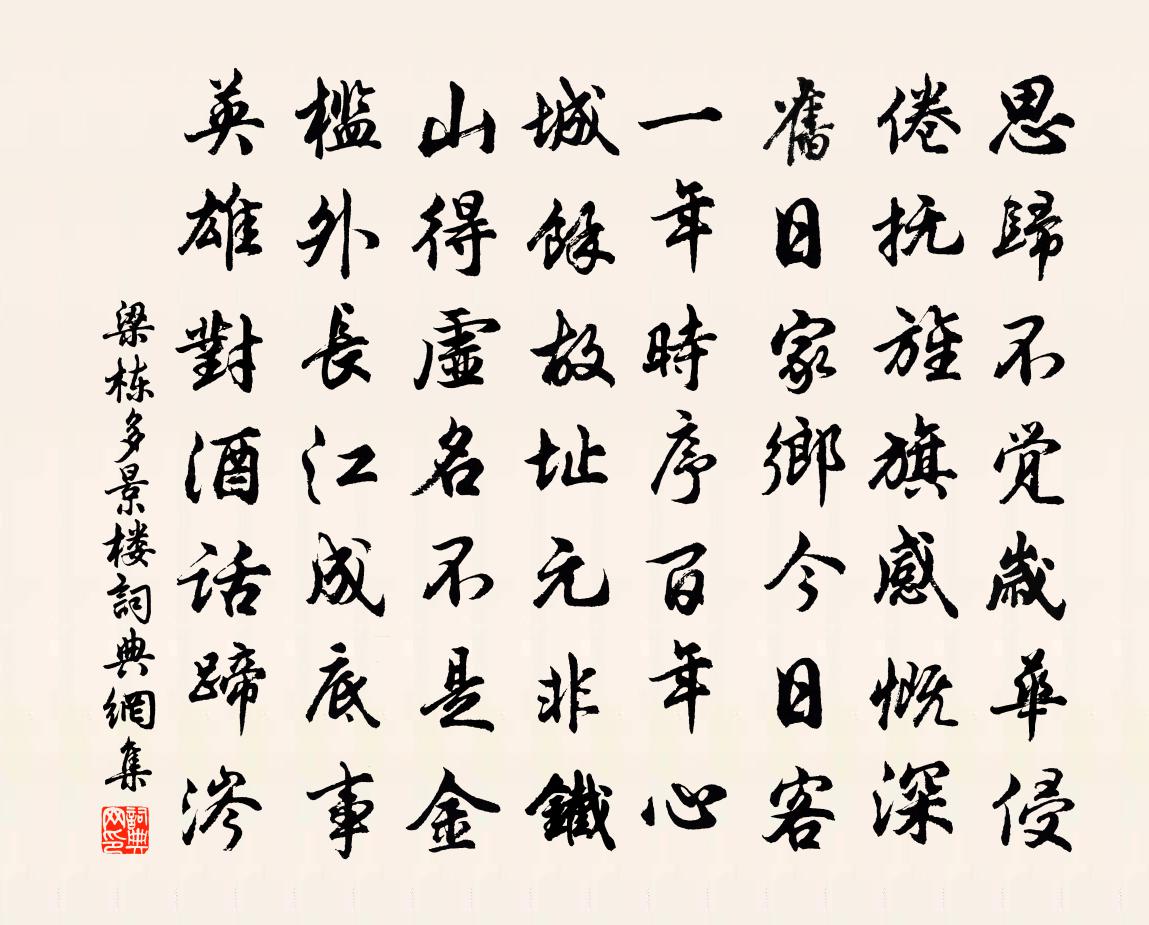 思歸不觉歲華侵
倦抚旌旗感慨深
舊日家鄉今日客
一年時序百年心
城餘故址元非鐵
山得虛名不是金
檻外長江成底事
英雄對酒話蹄涔
梁栋多景楼詞典網集
詞典网印